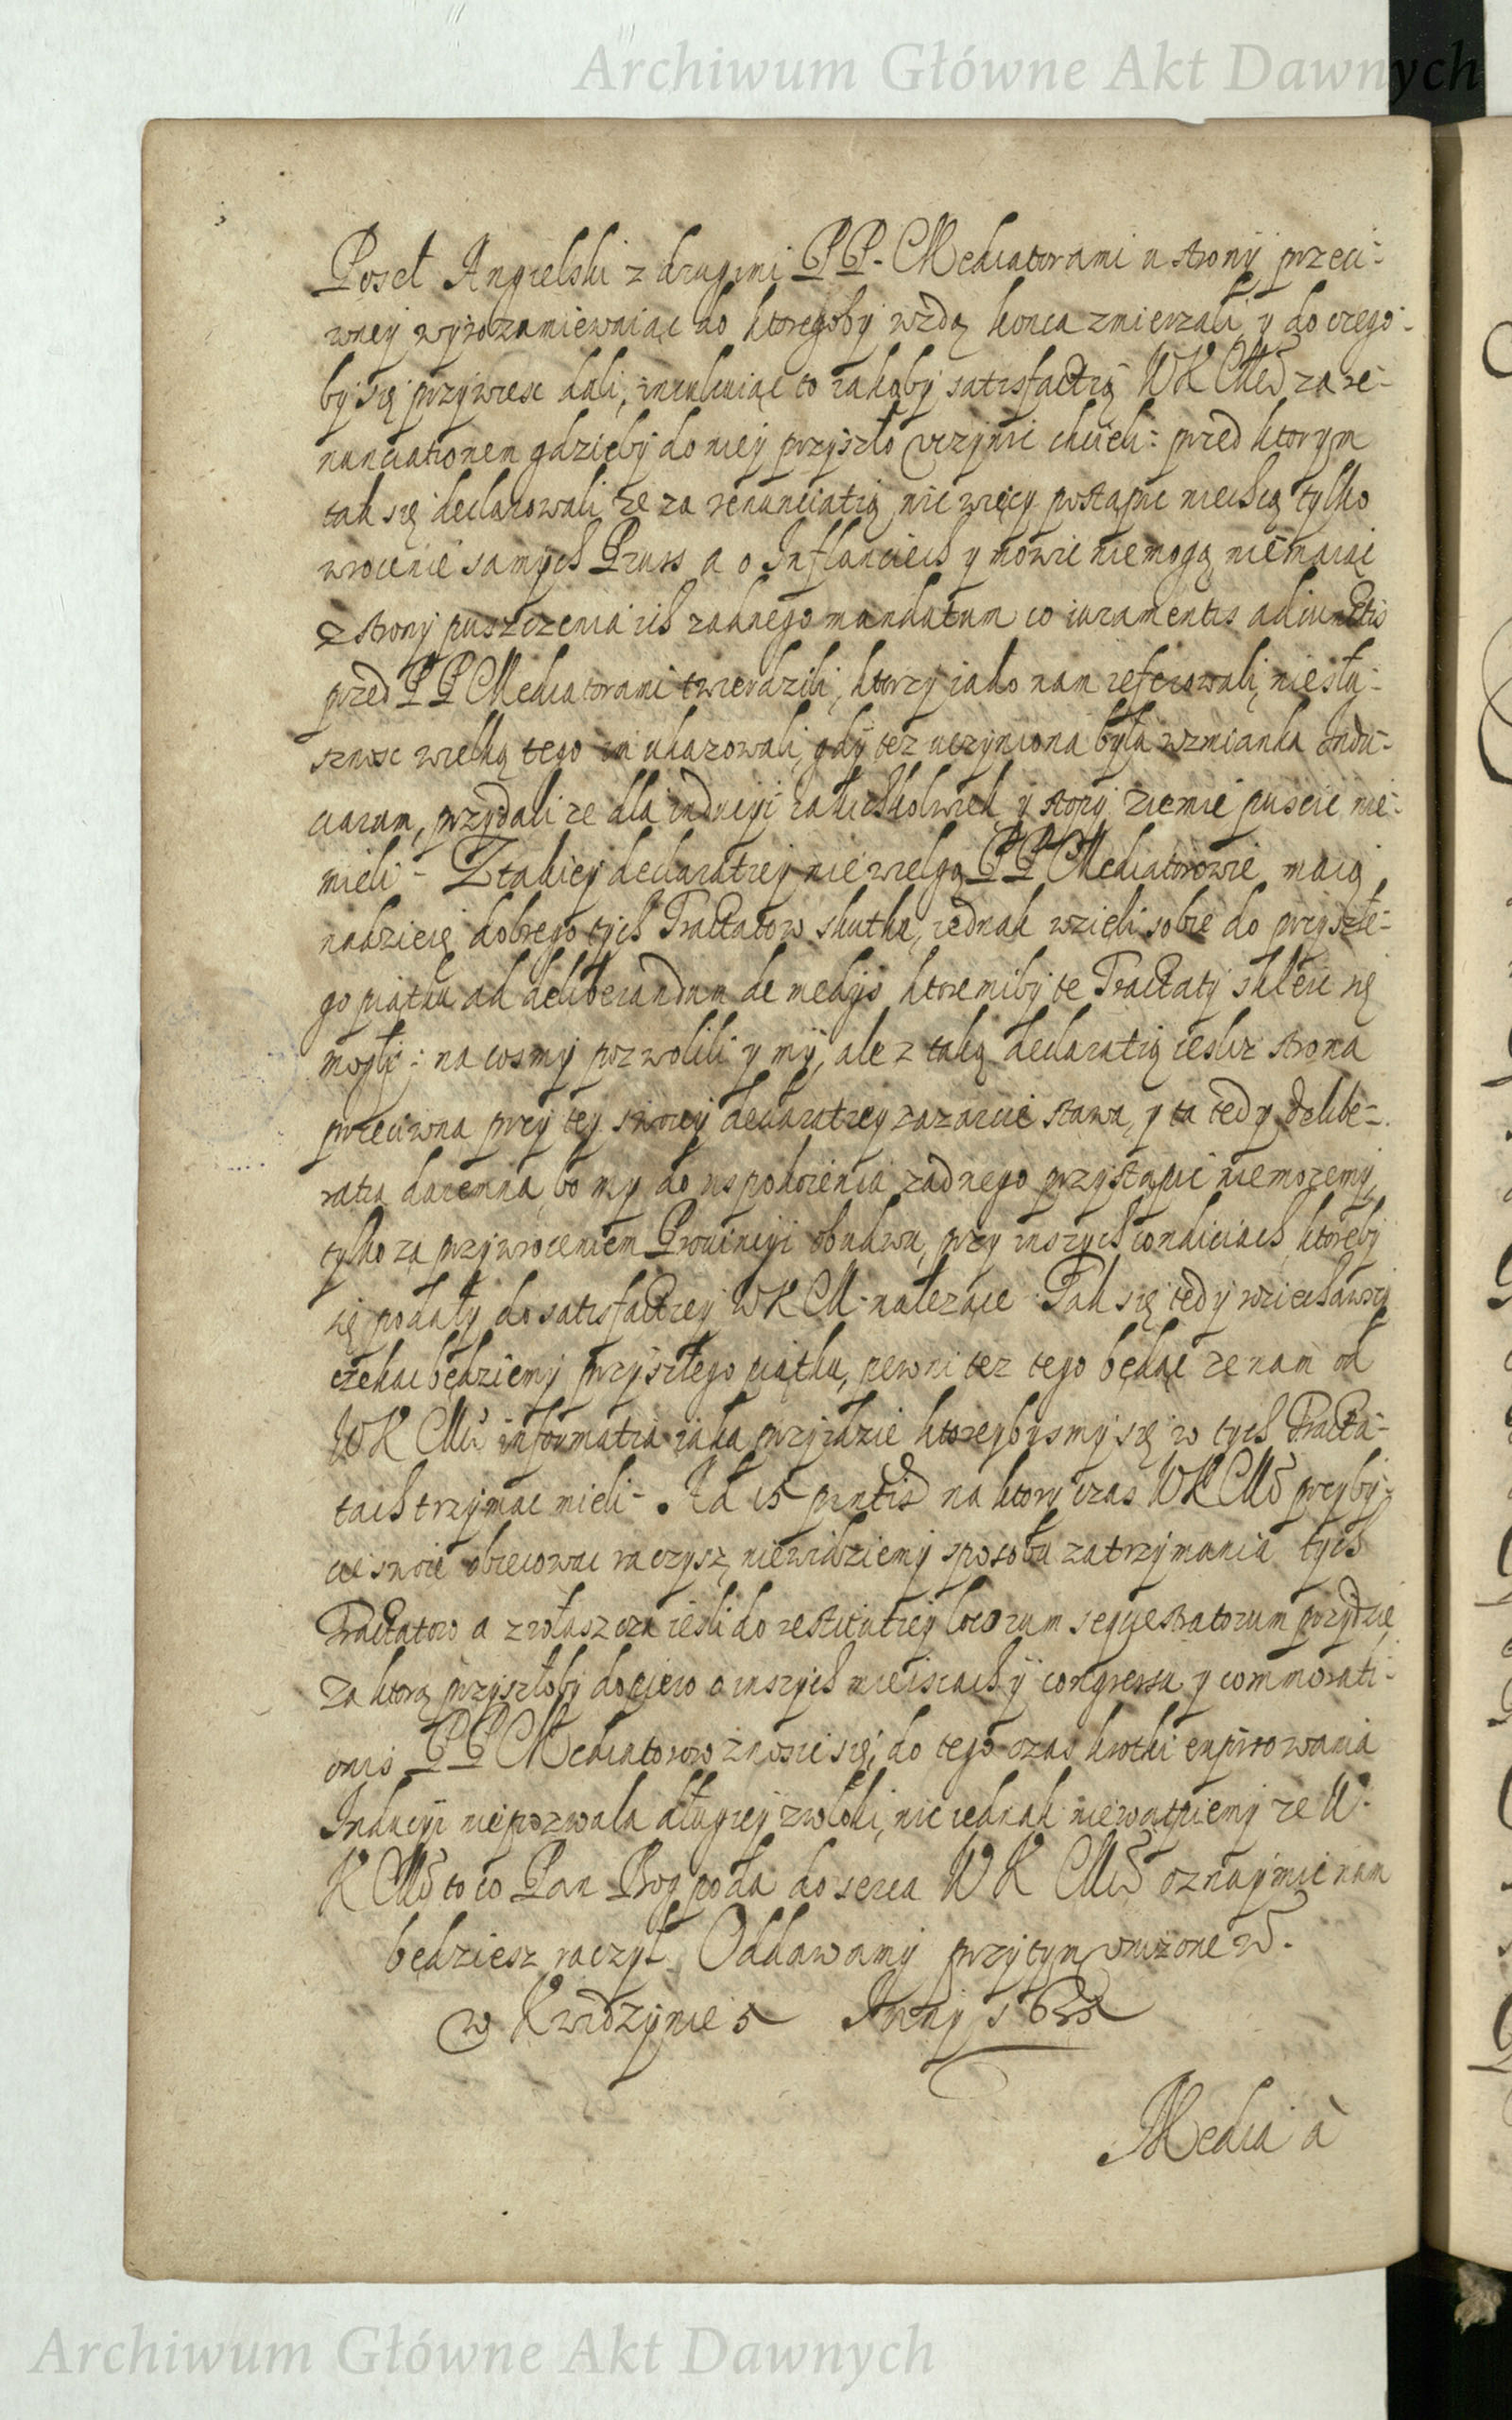 Archiwum Główne Akt Dawnych
Poseł Angielski z drugimi PP. Mediatorami u strony przeci-
wney wyrozumiewaiąc do ktoregoby wżdy konca zmierzali y do czego-
by się przywiesc dali, inculcuiąc to iakąby satisfactią WKMci za re-
nunciationem gdzieby do niey przyszło uczynic chcieli: przed ktorym
tak się declarowali, że za renunciatią nic więcy postąpic niechcą tylko
wrocenie samych Pruss a o Inflanciech y mowic niemogą niemaiąc
z strony puszczenia ich żadnego mandatum co iuramentis adiunctis
przed PP Mediatorami twierdzili, ktorzy iako nam referowali, niesłu-
sznosc wielką tego im ukazowali, gdy tez uczyniona była wzmianka Indu-
ciarum, przydali ze dla inducyi iakichkolwiek y stopy ziemie puscic nie-
mieli - Z takiey declaratiey niewielgą PP Mediatorowie maią
nadzieię dobrego tych Tractatow skutku, iednak wzieli sobie do przyszłe-
go piątku ad deliberandum de medijs ktoremiby te Tractaty skleic się
mogły: na cosmy pozwolili y my, ale z taką declaratią ieslisz strona
przeciwna przy tey swoiey declaratiey zazarcie stawa, y ta tedy delibe-
ratia daremna, bo my do uspokoienia zadnego przystąpic niemozemy,
tylko za przywroceniem Prouincyi obudwu, przy inszych condiciach, ktoreby
się podały do satisfactiey WKM. nalezące. Tak się tedy rozsiechawszy
czekac będziemy przyszłego piątku, pewni tez tego będąc ze nam od
WKMci informatia iaka przyidzie ktoreybysmy się w tych Tracta-
tach trzymac mieli - Ad 15 pntis na ktory czas WKMć przyby-
cie swoie obiecowac raczysz, niewidziemy sposobu zatrzymania tych
Tractatow a zwłaszcza iesli do restitutiey locorum sequestratorum przydzie,
za ktorą przyszłoby dopiero o inszych mieiscach y congressu y commorati-
onis PP Mediatorow znosic się, do tego czas krotki expirowania
Inducyi niepozwala długiey zwłoki, nic iednak niewątpiemy ze W.
KMć to co Pan Bog poda do serca WKMci oznaymic nam
będziesz raczył. Oddawamy przytym unizone etc.
w Kwidzynie 5 Iunij 1635
Media à
Archiwum Główne Akt Dawnych